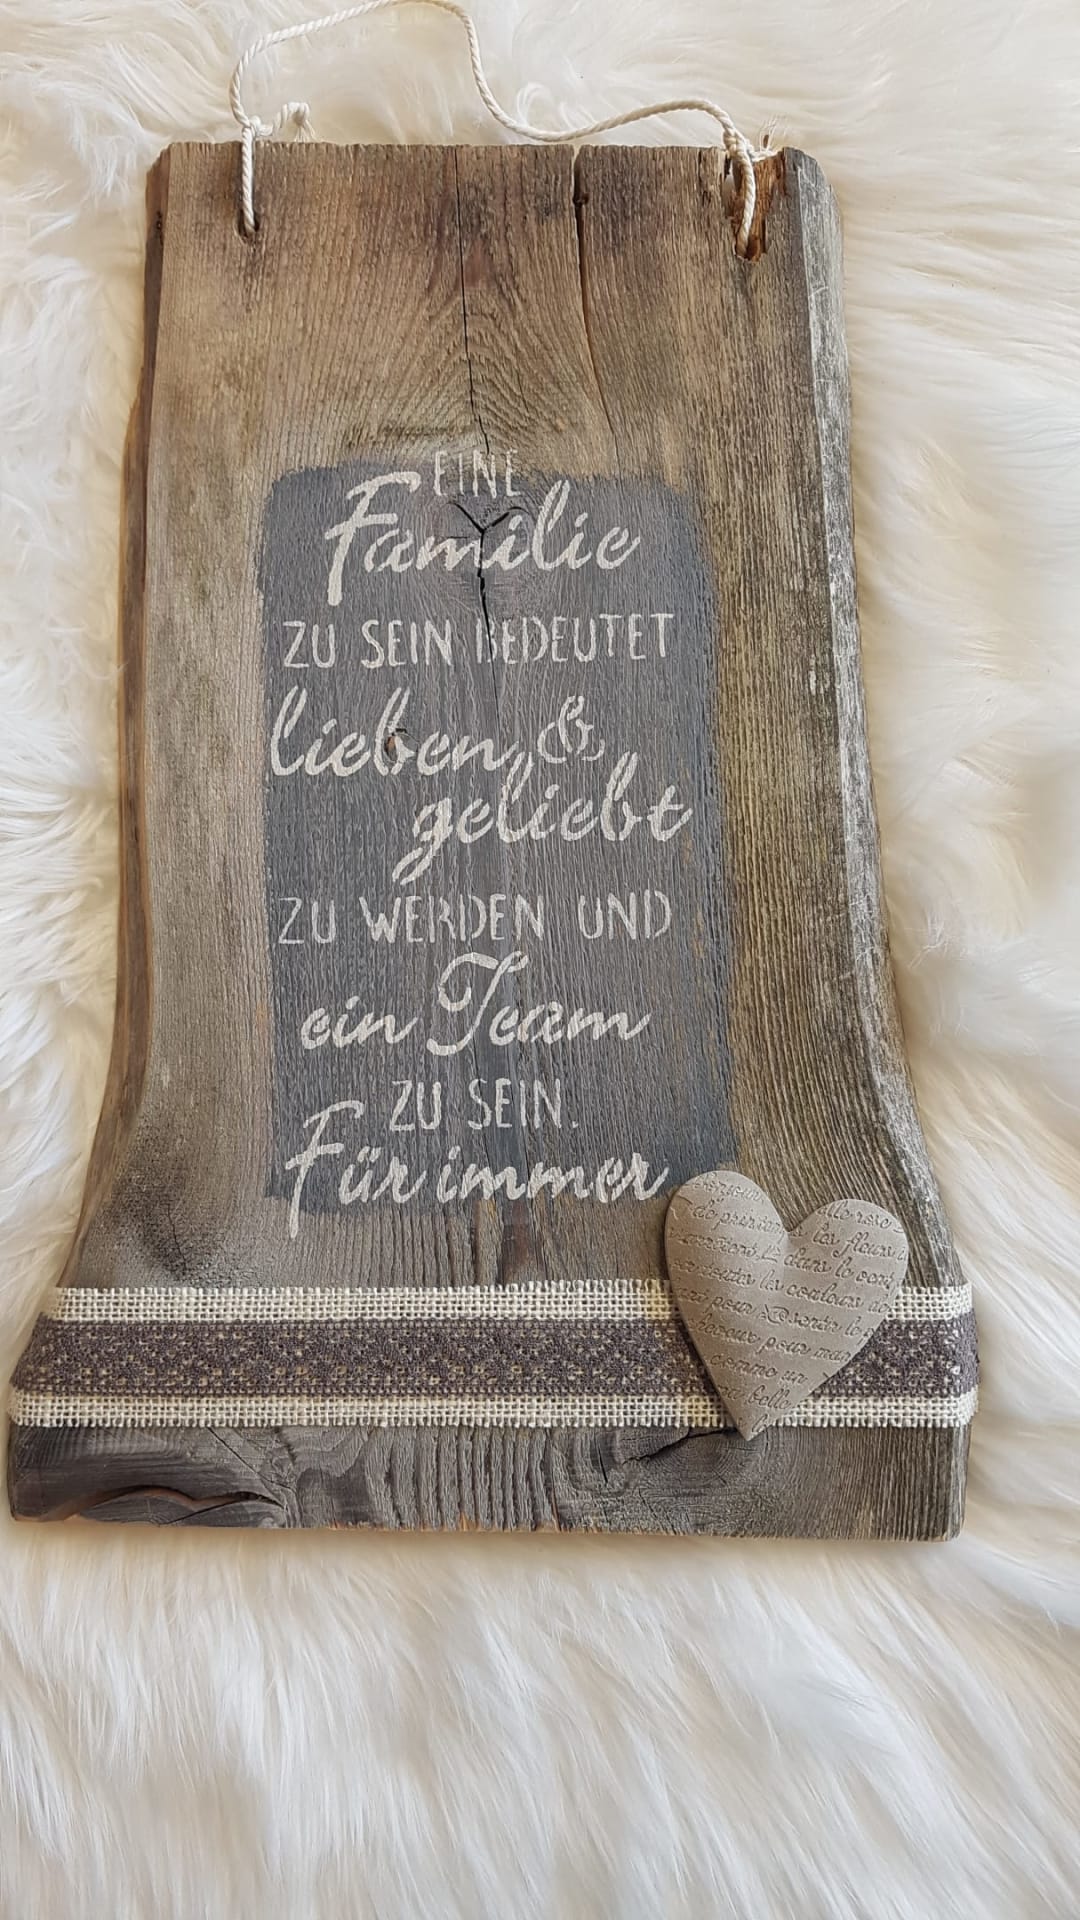 EINE
Familie
ZU SEIN BEDEUTET
lieben &
geliebt
ZU WERDEN UND
ein Team
ZU SEIN.
Für immer
de printemps
les fleurs
dans le
toutes les couleurs de
pour
pour
comme un
belle